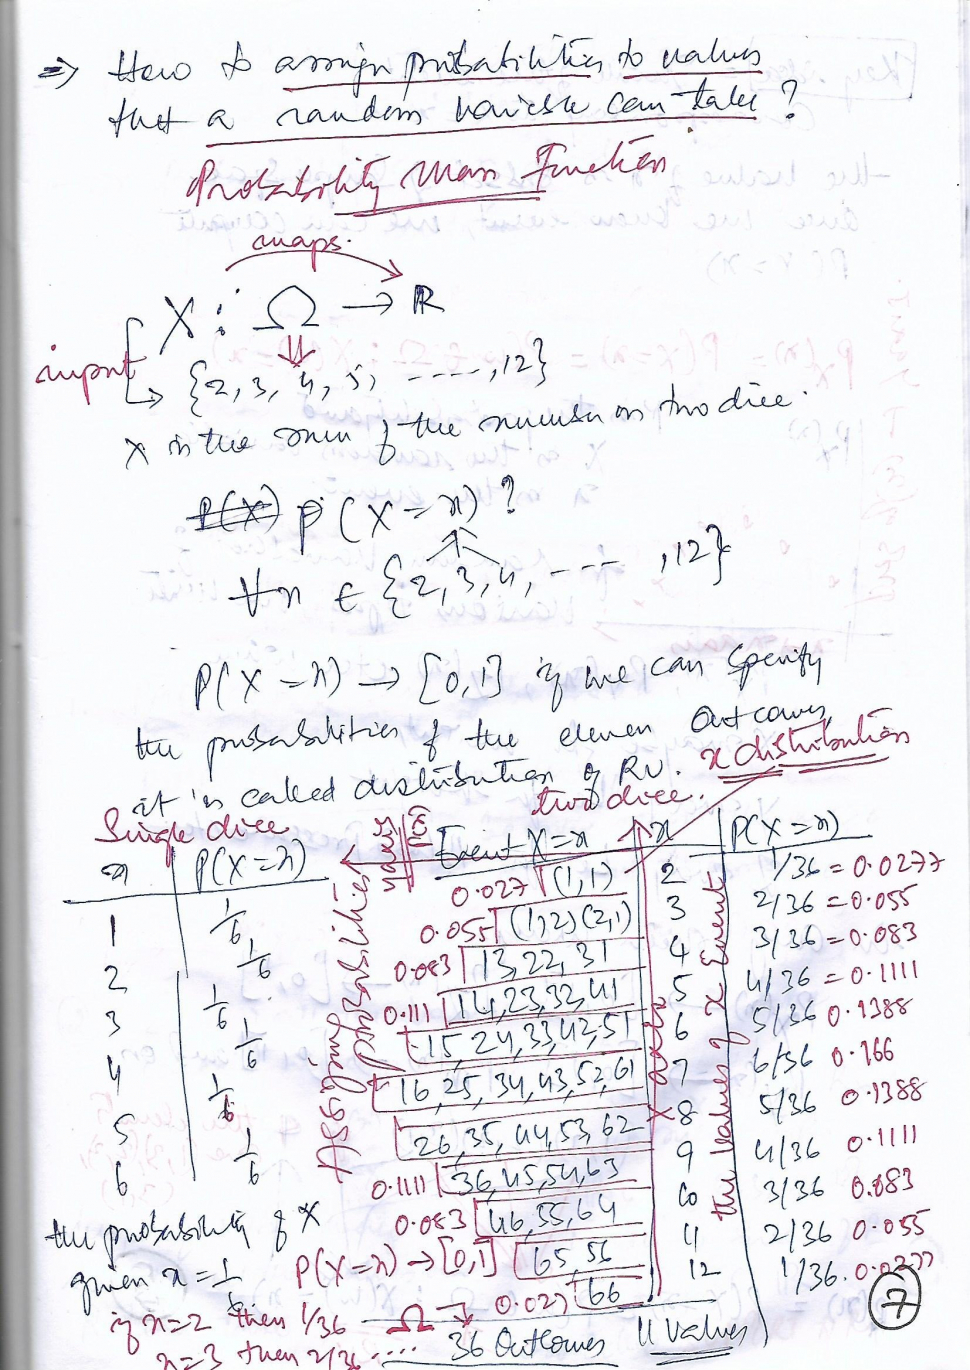 ⇒ How to assign probabilities to values
that a random variable can take?
Probability Mass Function
maps.
X : Ω → ℝ
input
{2, 3, 4, 5, ....., 12}
X is the sum of the number on two dice.
P(X) P (X = x) ?
∀x ∈ {2, 3, 4, --- , 12}
P(X = x) → [0,1] if we can specify
the probabilities of the eleven outcomes,
it is called distribution of RV. x distribution
Single dice
two dice.
x | P(X = x)
1 1/6
2 1/6
3 1/6
4 1/6
5 1/6
6 1/6
Assigning Probabilities
Event X = x | x | P(X = x)
0.027 (1,1) 2 1/36 = 0.0277
0.055 (1,2) (2,1) 3 2/36 = 0.055
0.083 13, 22, 31 4 3/36 = 0.083
0.111 14, 23, 32, 41 5 4/36 = 0.1111
15, 24, 33, 42, 51 6 5/36 0.1388
16, 25, 34, 43, 52, 61 7 6/36 0.166
26, 35, 44, 53, 62 8 5/36 0.1388
0.1111 36, 45, 54, 63 9 4/36 0.1111
0.083 46, 55, 64 10 3/36 0.083
65, 56 11 2/36 0.055
0.027 66 12 1/36. 0.0277
X axis
the values of x Event
the probability of X
given x = 1/6
P(X = x) → [0,1]
if x = 2 then 1/36
x = 3 then 2/36 ....
Ω
36 Outcomes 11 values
7